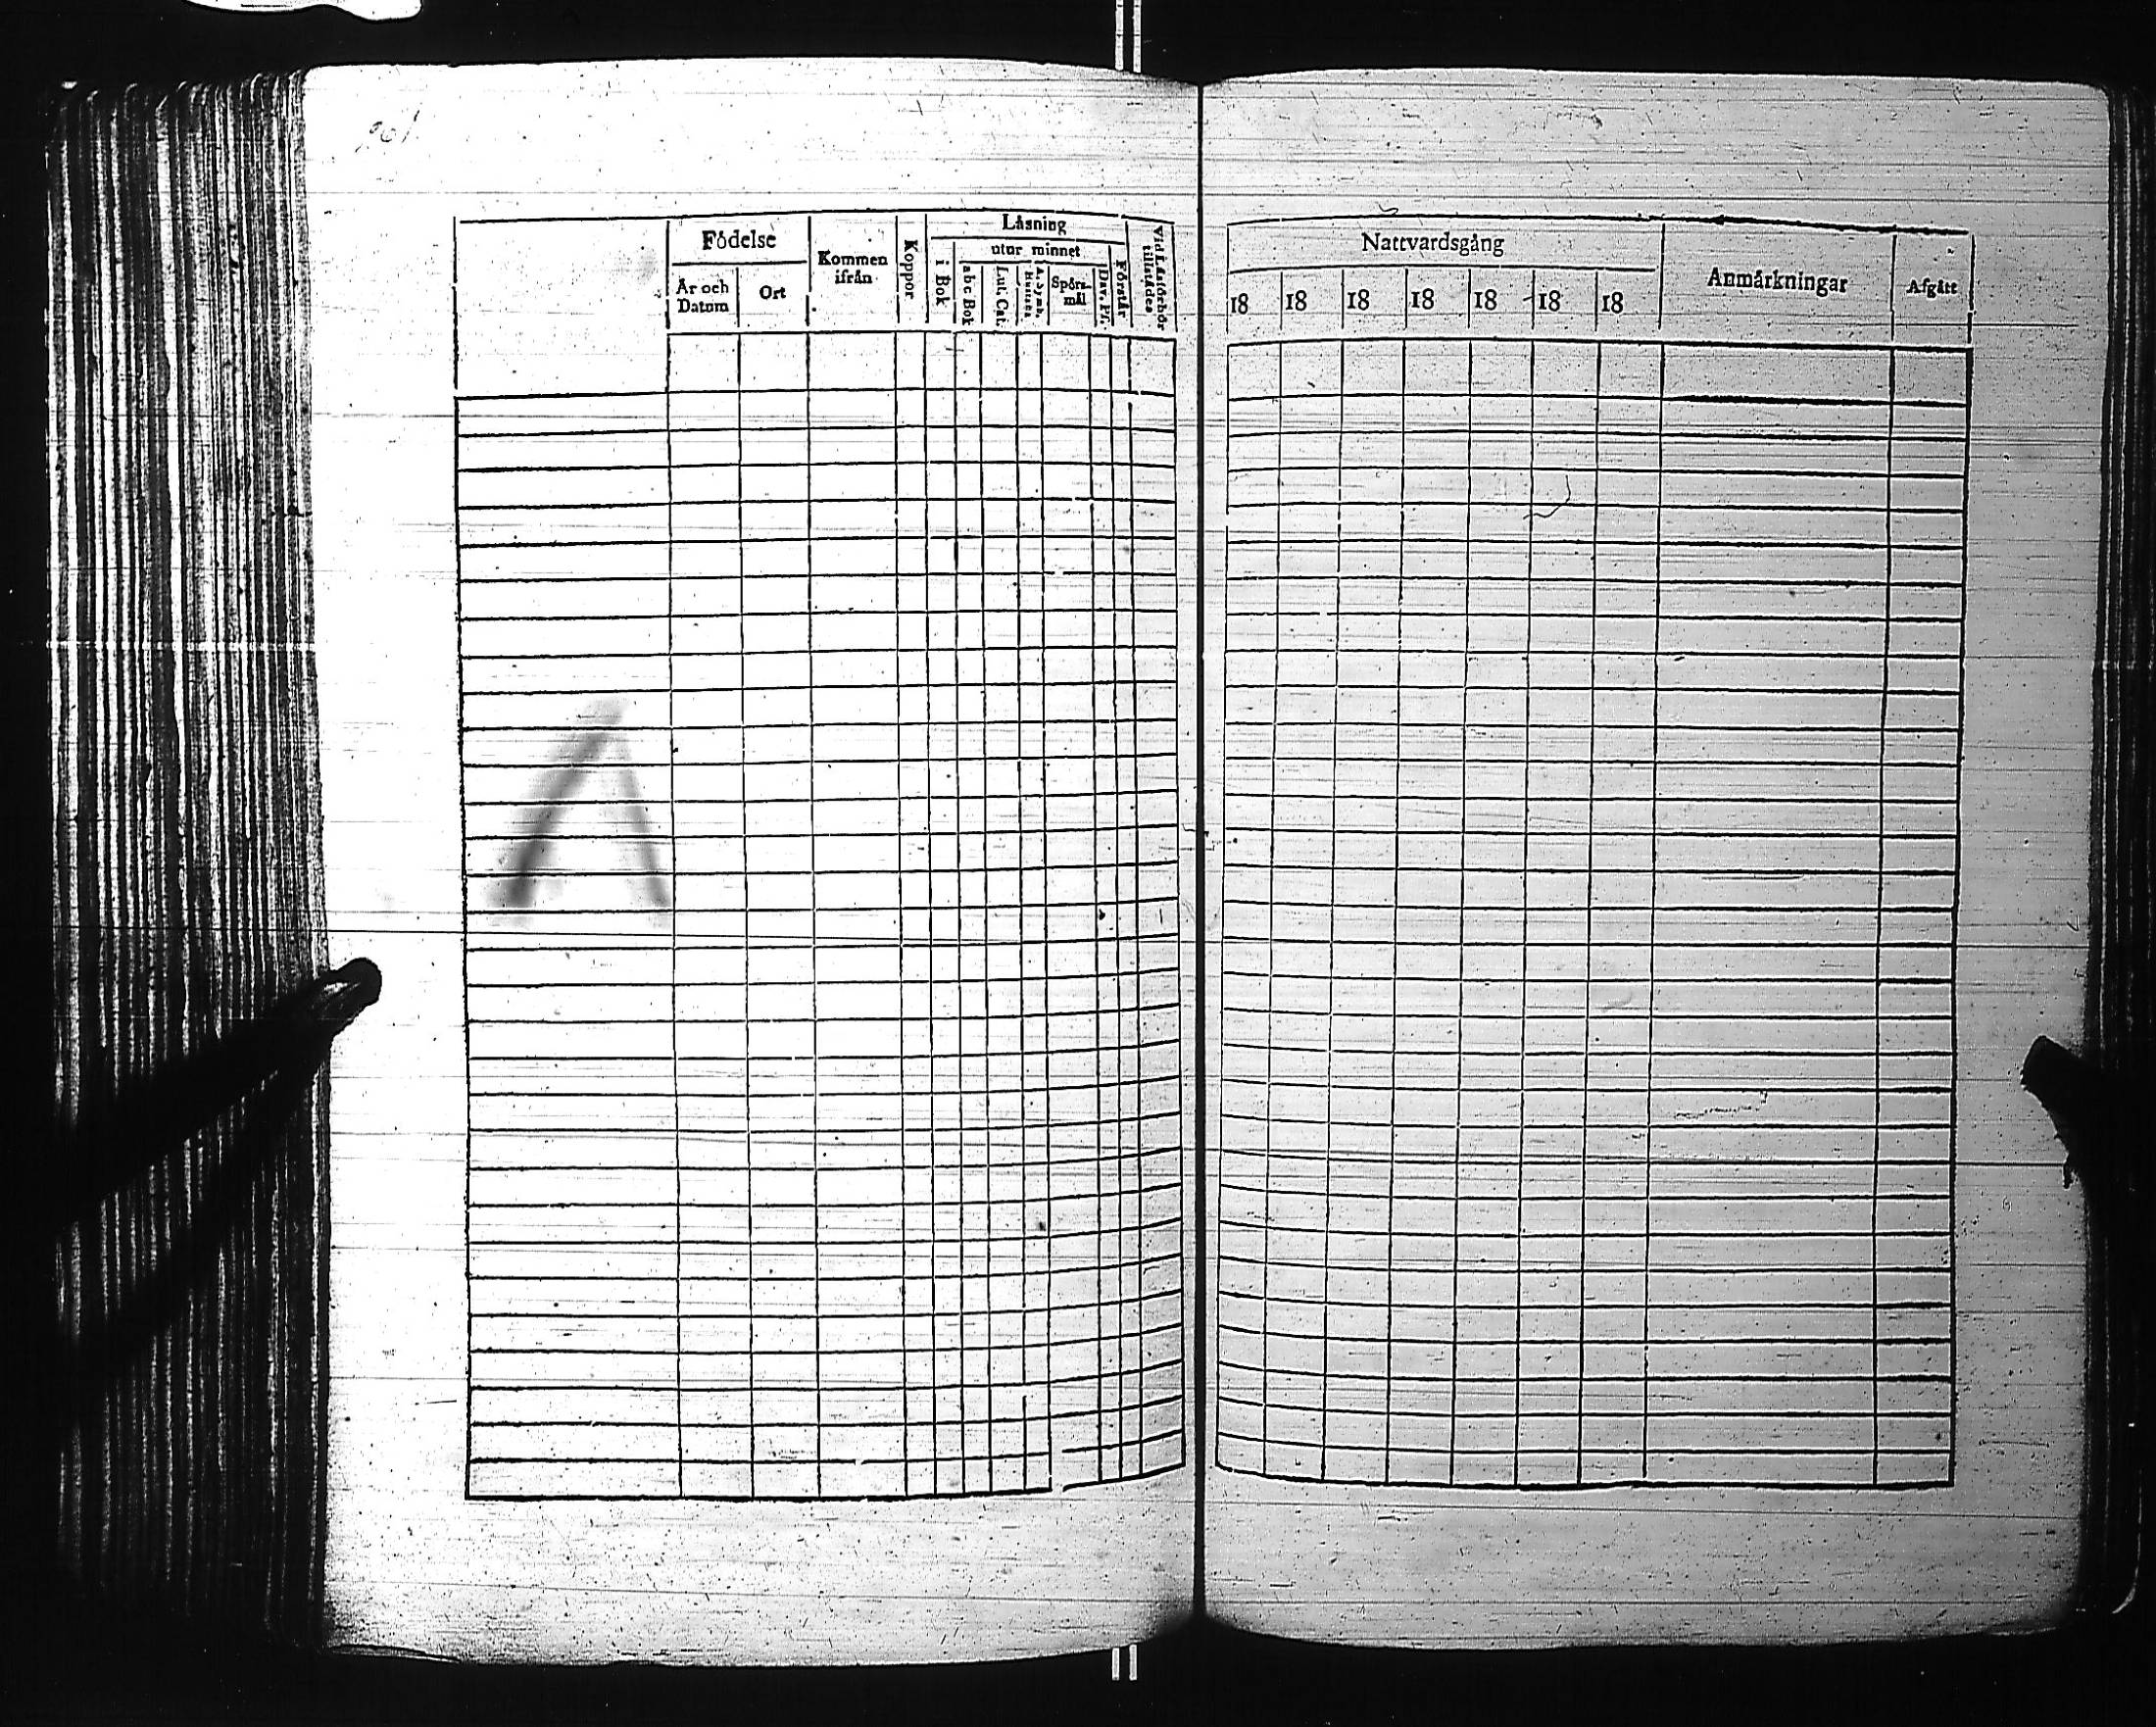 261.
Födelse
År och Datum
Ort
Kommen ifrån
Koppor
Läsning
i Bok
utur minnet
abc Bok
Lut. Cat.
A. Symb. Hustafl.
Spörsmål
Dav. Ps.
Förstår
Vid Läsförhör tillstädes
Nattvardsgång
18 18 18 18 18 18 18
Anmärkningar
Afgått